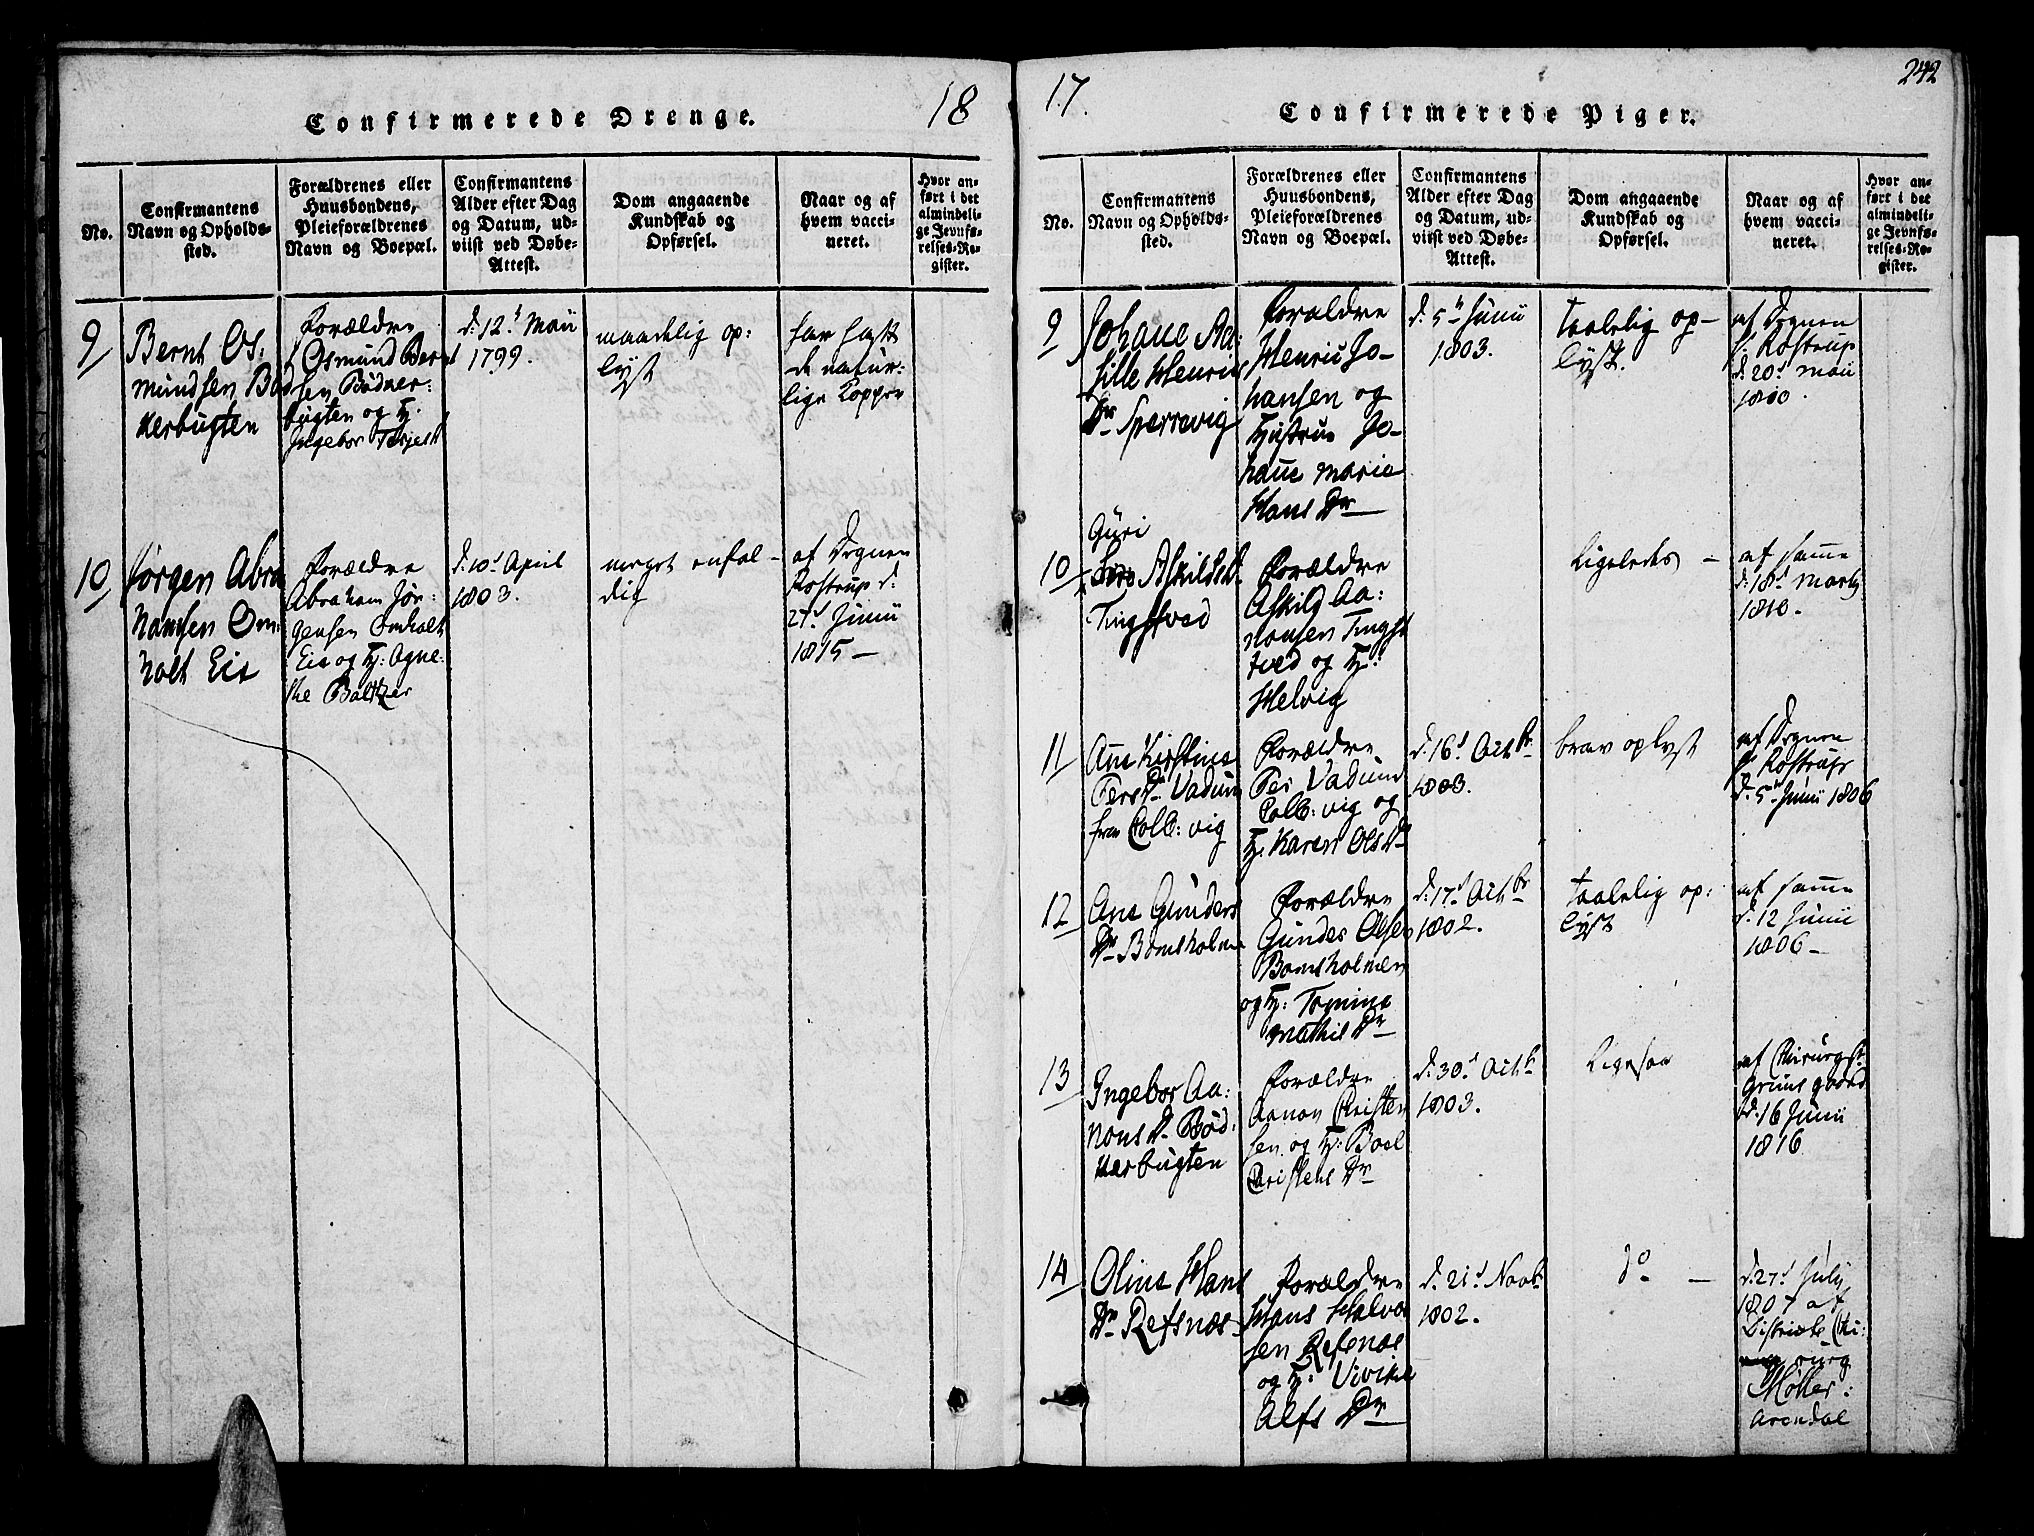 Confirmerede Drenge.
18
No.
Confirmantens
Navn og Opholds-
sted.
Forældrenes eller
Huusbondens,
Pleieforældrenes
Navn og Boepæl.
Confirmantens
Alder efter Dag
og Datum, ud-
viist ved Døbe-
Attest.
Dom angaaende
Kundskab og
Opførsel.
Naar og af
hvem vacci-
neret.
Hvor an-
ført i det
almindeli-
ge Jevnfø-
relses-Re-
gister.
9
Bernt Os:
mundsen Bød
kerbugten
Forældre
Osmund Bernt
sen Bødker:
bugten og H.
Ingebor Terjesd
d: 12t Maii
1799.
maadelig op:
lyst
har haft
de natur:
lige Kopper
10
Jørgen Abra
hamsen Om:
holt Eie
Forældre
Abraham Jør:
gensen Omholt
Eie og H: Agne:
the Baltzer
d: 10d April
1803.
meget enfol-
dig
af Degnen
Rostrup d:
27d Junii
1815 -
17.
Confirmerede Piger.
242
No.
Confirmantens
Navn og Opholds-
sted.
Forældrenes eller
Huusbondens,
Pleieforældrenes
Navn og Boepæl.
Confirmantens
Alder efter Dag
og Datum, ud-
viist ved Døbe-
Attest.
Dom angaaende
Kundskab og
Opførsel.
Naar og af
hvem vacci-
neret.
Hvor an-
ført i det
almindeli-
ge Jevnfø-
relses-Re-
gister.
9
Johane
Henrics
Dr Sperrevig
Forældre
Henric Jo-
hansen og
Hustrue Jo-
hane Marie
Hans Dr
d: 5t Junii
1803.
Taalelig op-
lyst.
af Degnen
Hr Rostrup
d: 20d Maii
1810.
10
Guri
Askildsd.
Tingstved
Forældre
Askild Aa:
nonsen Tingst
tved og H:
Helvig
Ligeledes -
af samme
d: 18d Marty
1810.
11
Ane Kirstine
Persd. Vadum
fra Colb: vig
Forældre
Per Vadum
Colb: vig og
H. Karen Ols Dr
d: 16d Octbr
1803.
brav oplyst
af Degnen
Hr Rostrup
d. 5t Junii 1806
12
Ane Gunders
Dr Bomsholmen
Forældre
Gunder Olsen
Bomsholmen
og H: Tomine
Mathis Dr
d: 17d Octbr
1802.
Taalelig op:
lyst
af samme
d. 12 Junii
1806 -
13
Ingebor Aa:
nons d. Bød:
kerbugten
Forældre
Aanon Christen
sen og H: Boel
Christens Dr
d: 30d Octbr
1803.
Ligesaa
af Chirurgst
Gruusgaard
d. 16 Junii
1816
14
Oline Hans
Dr Refsnæs
Forældre
Hans Halvor
sen Refsnæs
og H: Vivike
Alfs Dr
d: 21d Novb:
1802.
do -
d: 27d July
1807 af
Districts Chi:
rurg
Møller:
Arendal